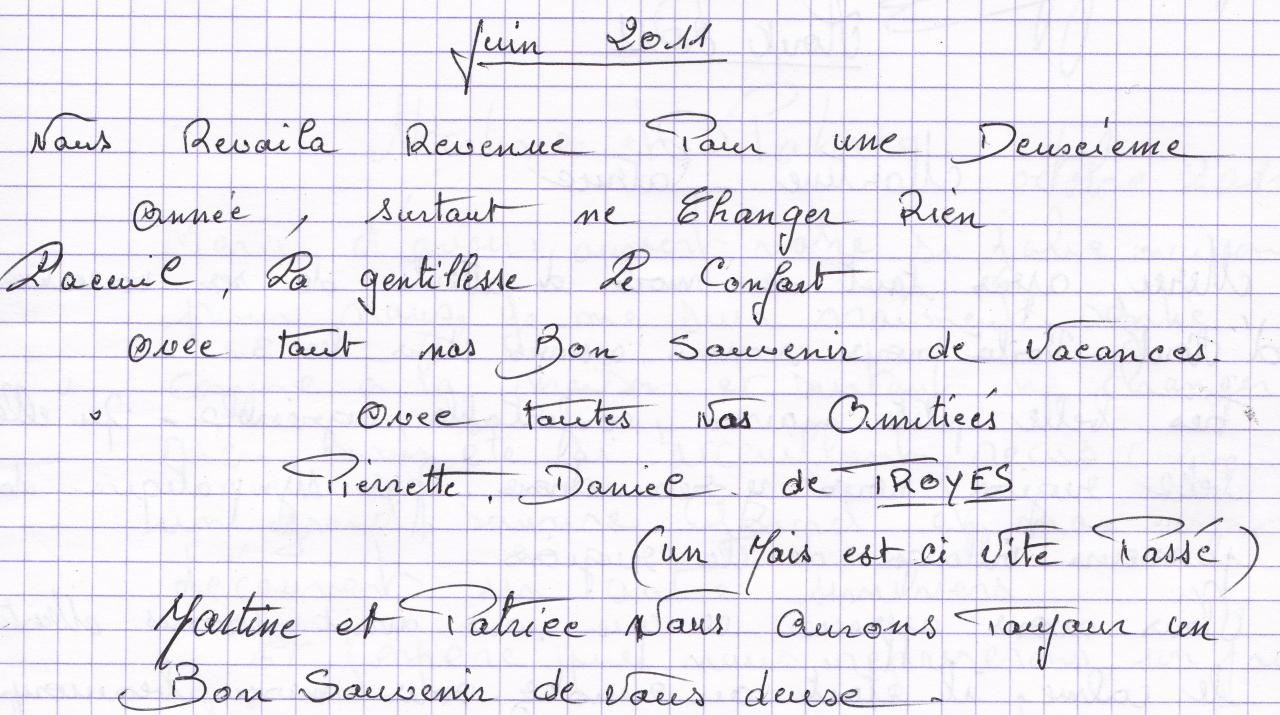 Juin 2011
Nous Revoila Revenue Pour une Deuxcieme
année, surtout ne Changer Rien
L'acceuil, La gentillesse Le Confort
avec tout nos Bon Souvenir de Vacances.
avec toutes nos Amitiées
Pierrette. Daniel. de TROYES
(un Mois est ci vite Passé)
Martine et Patrice Nous aurons Toujour un
Bon Souvenir de vous deuxe.